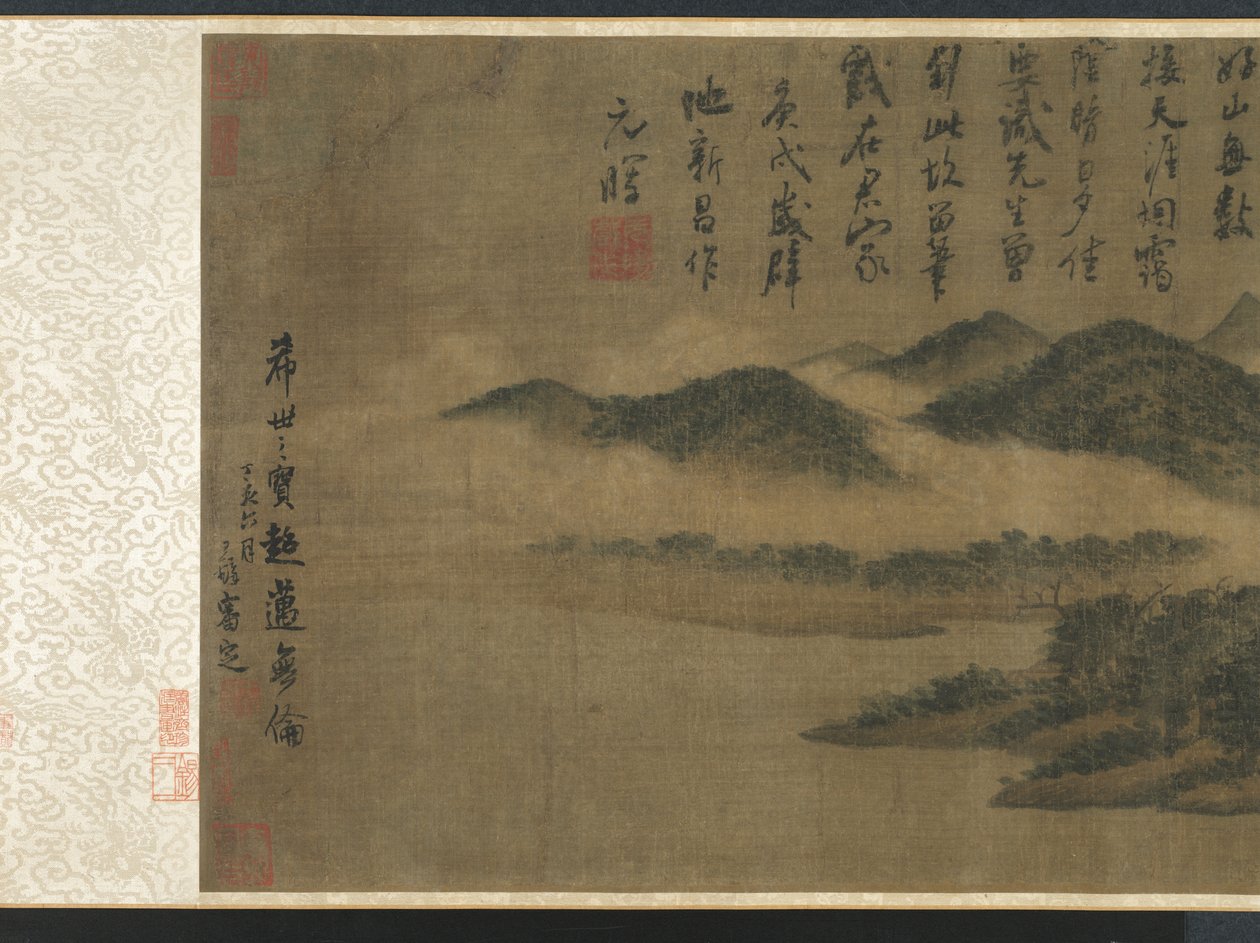 好山無數
接天涯烟靄
陰晴日夕佳
要識先生曾
到此故留筆
戲在君家
庚戌歲辟
地新昌作
元暉
希世之寶超邁無倫
丁亥六月
王鐸審定